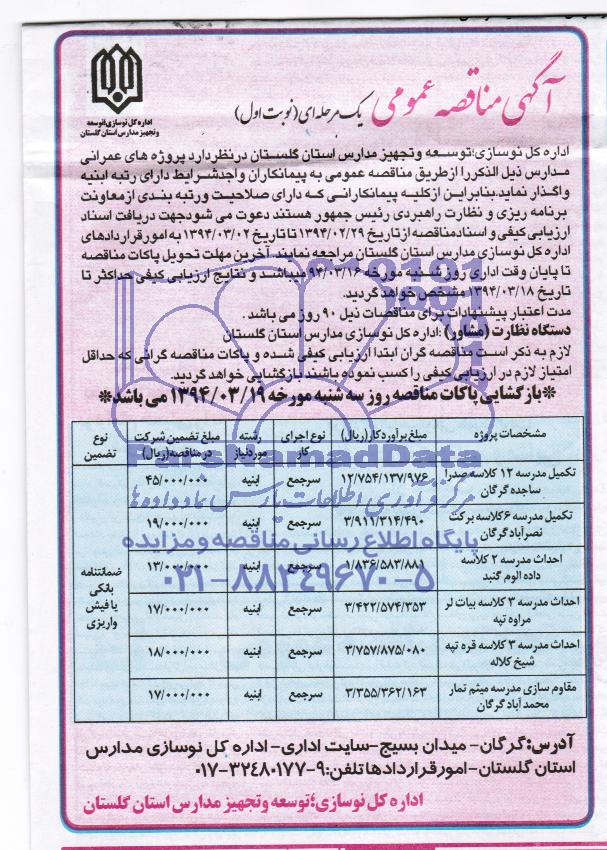 آگهی مناقصه عمومی یک مرحله‌ای (نوبت اول)
اداره کل نوسازی،توسعه
وتجهیز مدارس استان گلستان
اداره کل نوسازی؛توسعه وتجهیز مدارس استان گلستان درنظردارد پروژه های عمرانی
مدارس ذیل الذکررا ازطریق مناقصه عمومی به پیمانکاران واجدشرایط دارای رتبه ابنیه
واگذار نماید.بنابراین ازکلیه پیمانکارانی که دارای صلاحیت ورتبه بندی ازمعاونت
برنامه ریزی و نظارت راهبردی رئیس جمهور هستند دعوت می شودجهت دریافت اسناد
ارزیابی کیفی و اسنادمناقصه ازتاریخ ۱۳۹۴/۰۲/۲۹ تا تاریخ ۱۳۹۴/۰۳/۰۲به امورقراردادهای
اداره کل نوسازی مدارس استان گلستان مراجعه نمایند.آخرین مهلت تحویل پاکات مناقصه
تا پایان وقت اداری روز شنبه مورخه ۹۴/۰۳/۱۶ میباشد و نتایج ارزیابی کیفی حداکثر تا
تاریخ ۱۳۹۴/۰۳/۱۸ مشخص خواهد گردید.
مدت اعتبار پیشنهادات برای مناقصات ذیل ۹۰ روز می باشد.
دستگاه نظارت (مشاور) :اداره کل نوسازی مدارس استان گلستان
لازم به ذکر است مناقصه گران ابتدا ارزیابی کیفی شده و پاکات مناقصه گرانی که حداقل
امتیاز لازم در ارزیابی کیفی را کسب نموده باشند بازگشایی خواهد گردید.
*بازگشایی پاکات مناقصه روز سه شنبه مورخه ۱۳۹۴/۰۳/۱۹ می باشد*
مشخصات پروژه	مبلغ برآوردکار(ریال)	نوع اجرای کار	رشته موردنیاز	مبلغ تضمین شرکت درمناقصه(ریال)	نوع تضمین
تکمیل مدرسه ۱۲ کلاسه صدرا ساجده گرگان	۱۲/۷۵۴/۱۳۷/۹۷۶	سرجمع	ابنیه	۴۵/۰۰۰/۰۰۰	ضمانتنامه بانکی یا فیش واریزی
تکمیل مدرسه ۶کلاسه برکت نصرآباد گرگان	۳/۹۱۱/۳۱۴/۴۹۰	سرجمع	ابنیه	۱۹/۰۰۰/۰۰۰
احداث مدرسه ۲ کلاسه داده الوم گنبد	۱/۸۳۶/۵۸۳/۸۸۱	سرجمع	ابنیه	۱۳/۰۰۰/۰۰۰
احداث مدرسه ۳ کلاسه بیات لر مراوه تپه	۳/۴۲۲/۵۷۴/۳۵۳	سرجمع	ابنیه	۱۷/۰۰۰/۰۰۰
احداث مدرسه ۳ کلاسه قره تپه شیخ کلاله	۳/۷۵۷/۸۷۵/۰۸۰	سرجمع	ابنیه	۱۸/۰۰۰/۰۰۰
مقاوم سازی مدرسه میثم تمار محمد آباد گرگان	۳/۳۵۵/۳۶۲/۱۶۳	سرجمع	ابنیه	۱۷/۰۰۰/۰۰۰
ParsNamadData
مرکز فرآوری اطلاعات پارس نماد داده ها
پایگاه اطلاع رسانی مناقصه و مزایده
۰۲۱-۸۸۳۴۹۶۷۰-۵
آدرس:گرگان- میدان بسیج-سایت اداری- اداره کل نوسازی مدارس
استان گلستان-امورقراردادهاتلفن:۹-۰۱۷-۳۲۴۸۰۱۷۷
اداره کل نوسازی؛توسعه وتجهیز مدارس استان گلستان